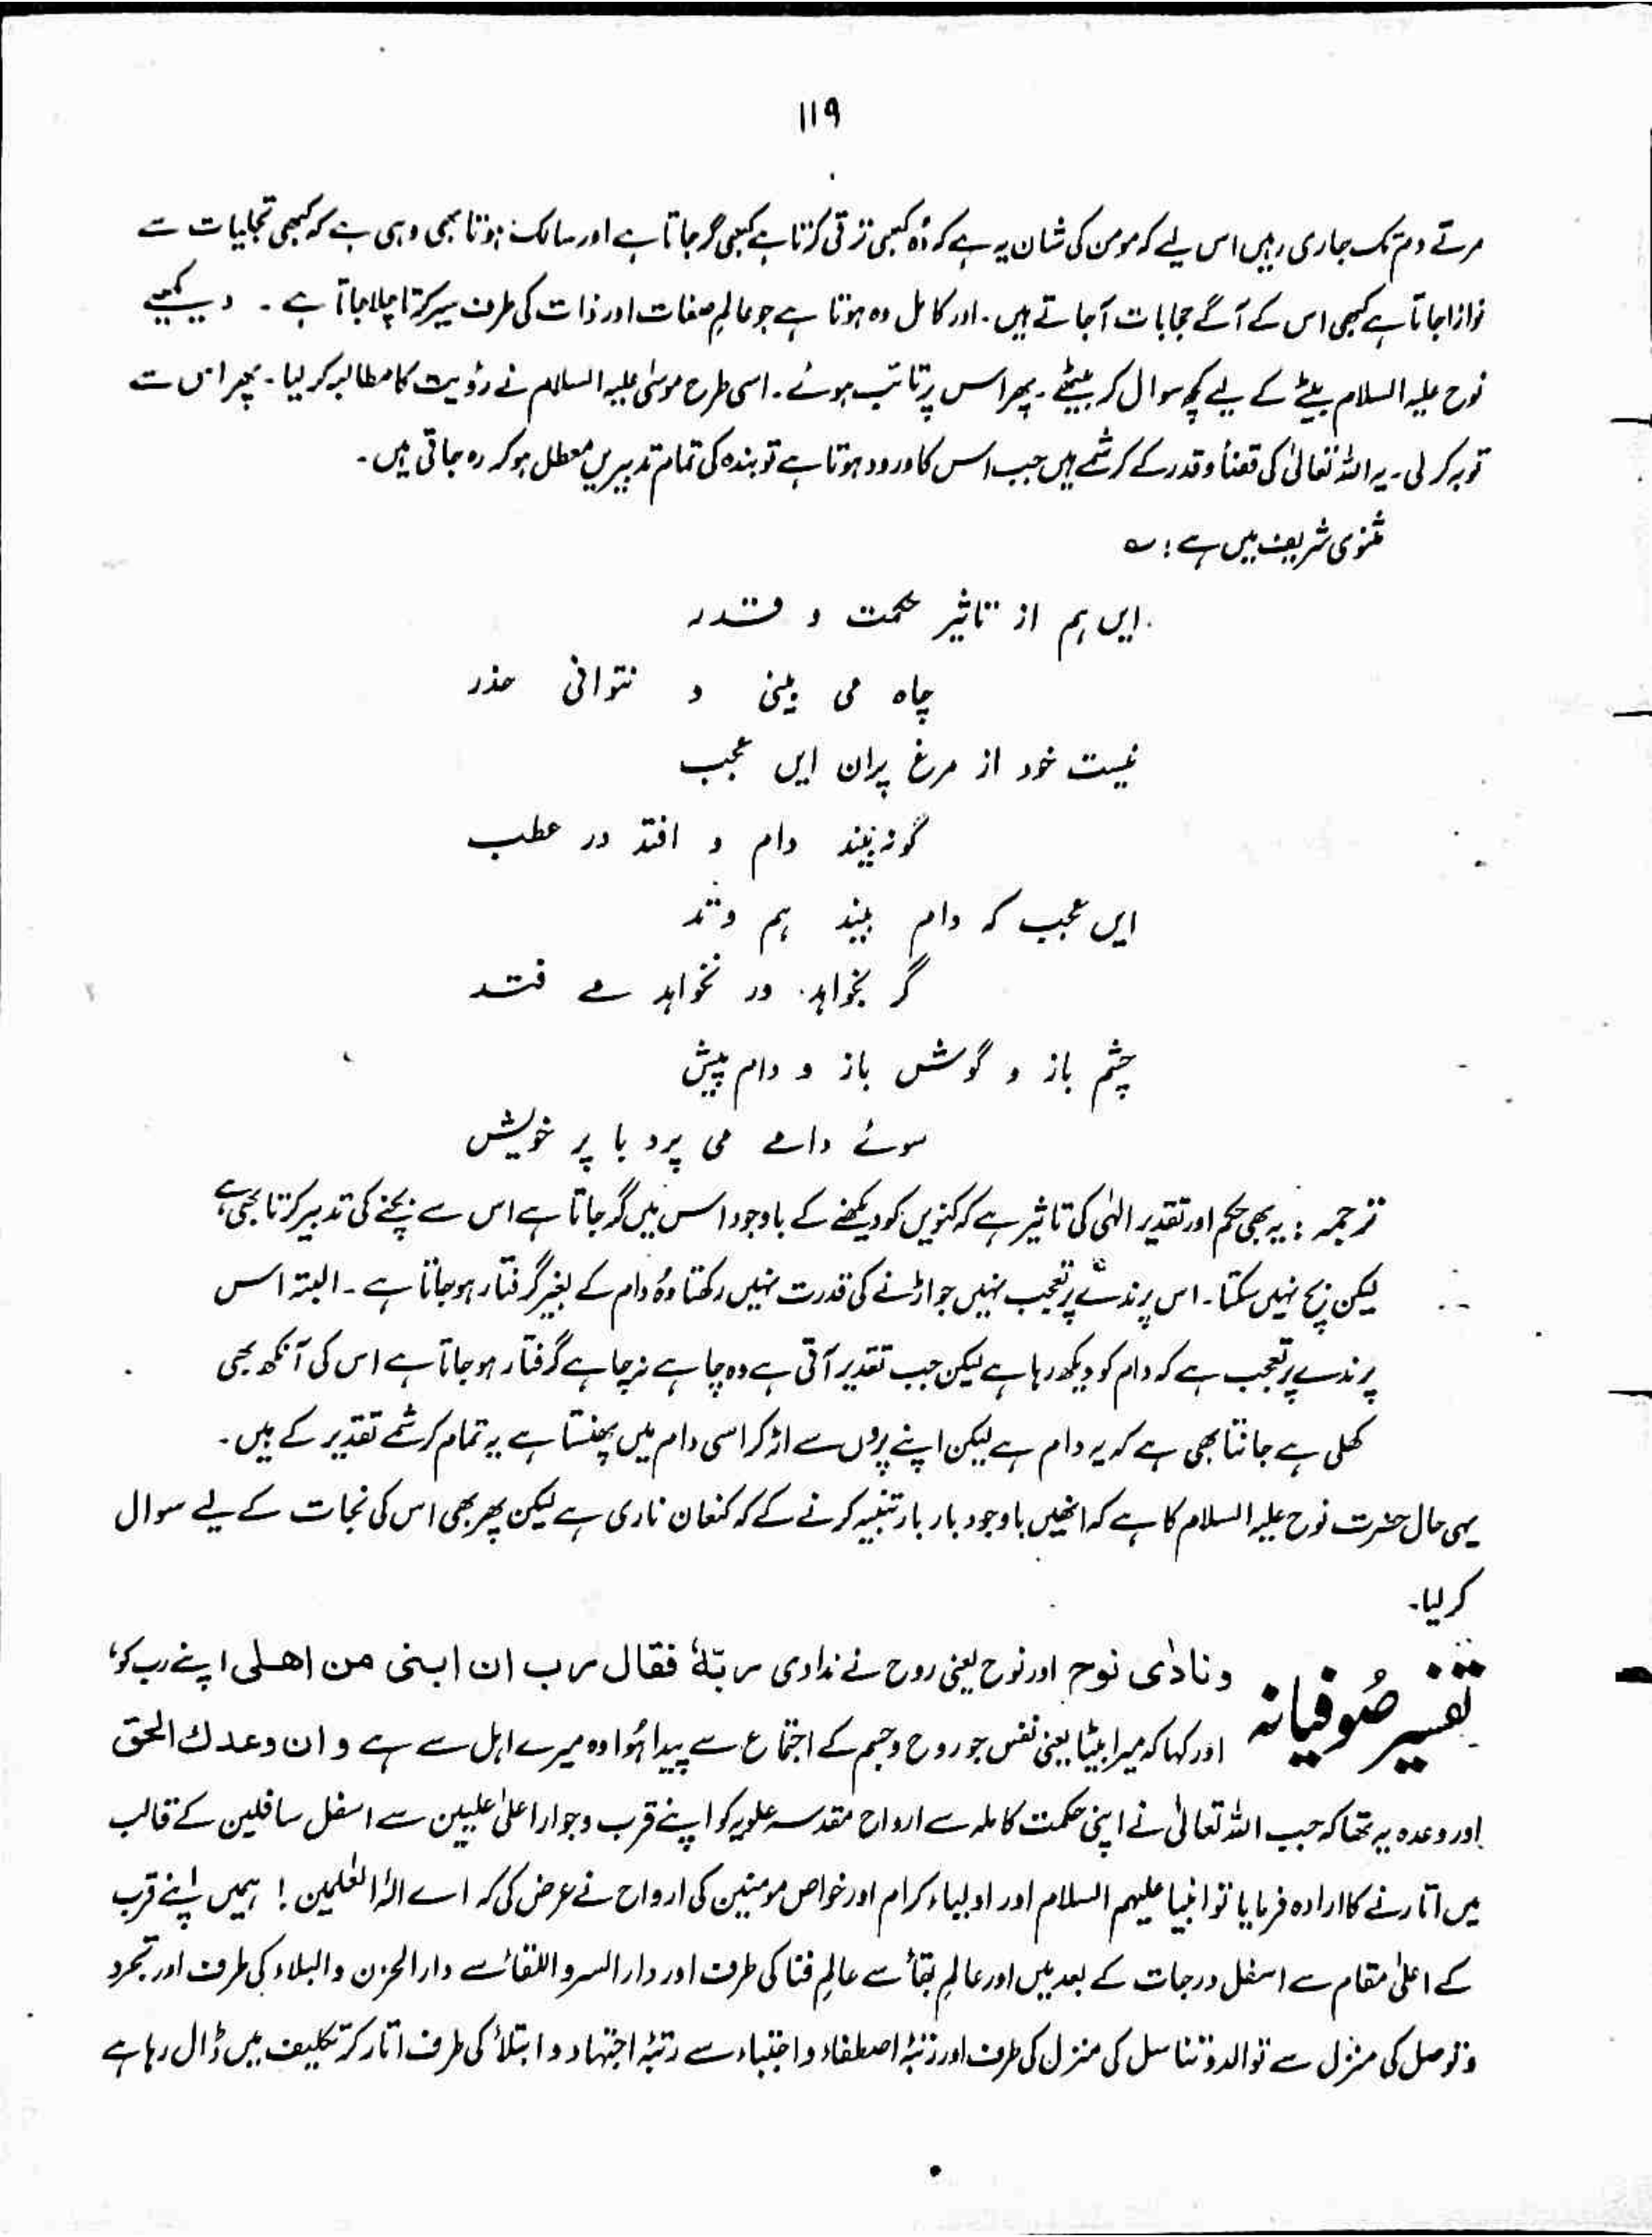 ۱۱۹
مرتے دم تک جاری رہیں اس لیے کہ مومن کی شان یہ ہے کہ وُہ کبھی ترقی کرتا ہے کبھی گر جاتا ہے اور سالک ہوتا بھی وہی ہے کہ کبھی تجلیات سے
نوازا جاتا ہے کبھی اس کے آگے حجابات آجاتے ہیں۔ اور کامل وہ ہوتا ہے جو عالمِ صفات اور ذات کی طرف سیر کرتا چلا جاتا ہے ۔ دیکھیے
نوح علیہ السلام بیٹے کے لیے کچھ سوال کر بیٹھے۔ پھر اس پر تائب ہوئے۔ اسی طرح موسٰی علیہ السلام نے رؤیت کا مطالبہ کر لیا۔ پھر اس سے
توبہ کر لی۔ یہ اللہ تعالیٰ کی قضأ و قدر کے کرشمے ہیں جب اس کا ورود ہوتا ہے تو بندہ کی تمام تدبیریں معطل ہو کر رہ جاتی ہیں۔
مثنوی شریف میں ہے : ؎
ایں ہم از تاثیر حکمت و قدر
چاہ می بینی و نتوانی حذر
نیست خود از مرغ پران ایں عجب
گو نہ بیند دام و افتد در عطب
ایں عجب کہ دام بیند ہم وتد
گر بخواہد ور نخواہد مے فتد
چشم باز و گوش باز و دام پیش
سوئے دامے می پرد با پر خویش
ترجمہ : یہ بھی حکم اور تقدیر الٰہی کی تاثیر ہے کہ کنویں کو دیکھنے کے باوجود اس میں گر جاتا ہے اس سے بچنے کی تدبیر کرتا بھی ہے
لیکن بچ نہیں سکتا۔ اس پرندے پر تعجب نہیں جو اڑنے کی قدرت نہیں رکھتا وُہ دام کے بغیر گرفتار ہو جاتا ہے ۔ البتہ اس
پرندے پر تعجب ہے کہ دام کو دیکھ رہا ہے لیکن جب تقدیر آتی ہے وہ چاہے نہ چاہے گرفتار ہو جاتا ہے اس کی آنکھ بھی
کھلی ہے جانتا بھی ہے کہ یہ دام ہے لیکن اپنے پروں سے اڑ کر اسی دام میں پھنستا ہے یہ تمام کرشمے تقدیر کے ہیں۔
یہی حال حضرت نوح علیہ السلام کا ہے کہ انھیں باوجود بار بار تنبیہ کرنے کے کہ کنعان ناری ہے لیکن پھر بھی اس کی نجات کے لیے سوال
کر لیا۔
تفسیر صُوفیانہ
ونادٰی نوح اور نوح یعنی روح نے ندا دی ربّہٗ فقال رب ان ابنی من اھلی اپنے رب کو،
اور کہا کہ میرا بیٹا یعنی نفس جو روح و جسم کے اجتماع سے پیدا ہُوا وہ میرے اہل سے ہے و ان وعدك الحق
اور وعدہ یہ تھا کہ جب اللہ تعالیٰ نے اپنی حکمت کاملہ سے ارواح مقدسہ علویہ کو اپنے قرب و جوار اعلیٰ علیین سے اسفل سافلین کے قالب
میں اتارنے کا ارادہ فرمایا تو انبیا علیہم السلام اور اولیاء کرام اور خواص مومنین کی ارواح نے عرض کی کہ اے الٰہ العٰلمین ! ہمیں اپنے قرب
کے اعلیٰ مقام سے اسفل درجات کے بعد میں اور عالمِ بقأ سے عالمِ فنا کی طرف اور دار السرو اللقأ سے دار الحزن والبلاء کی طرف اور تجرد
و توصل کی منزل سے توالد و تناسل کی منزل کی طرف اور رتبۂ اصطفاء و اجتباء سے رتبۂ اجتہاد و ابتلأ کی طرف اتار کر تکلیف میں ڈال رہا ہے